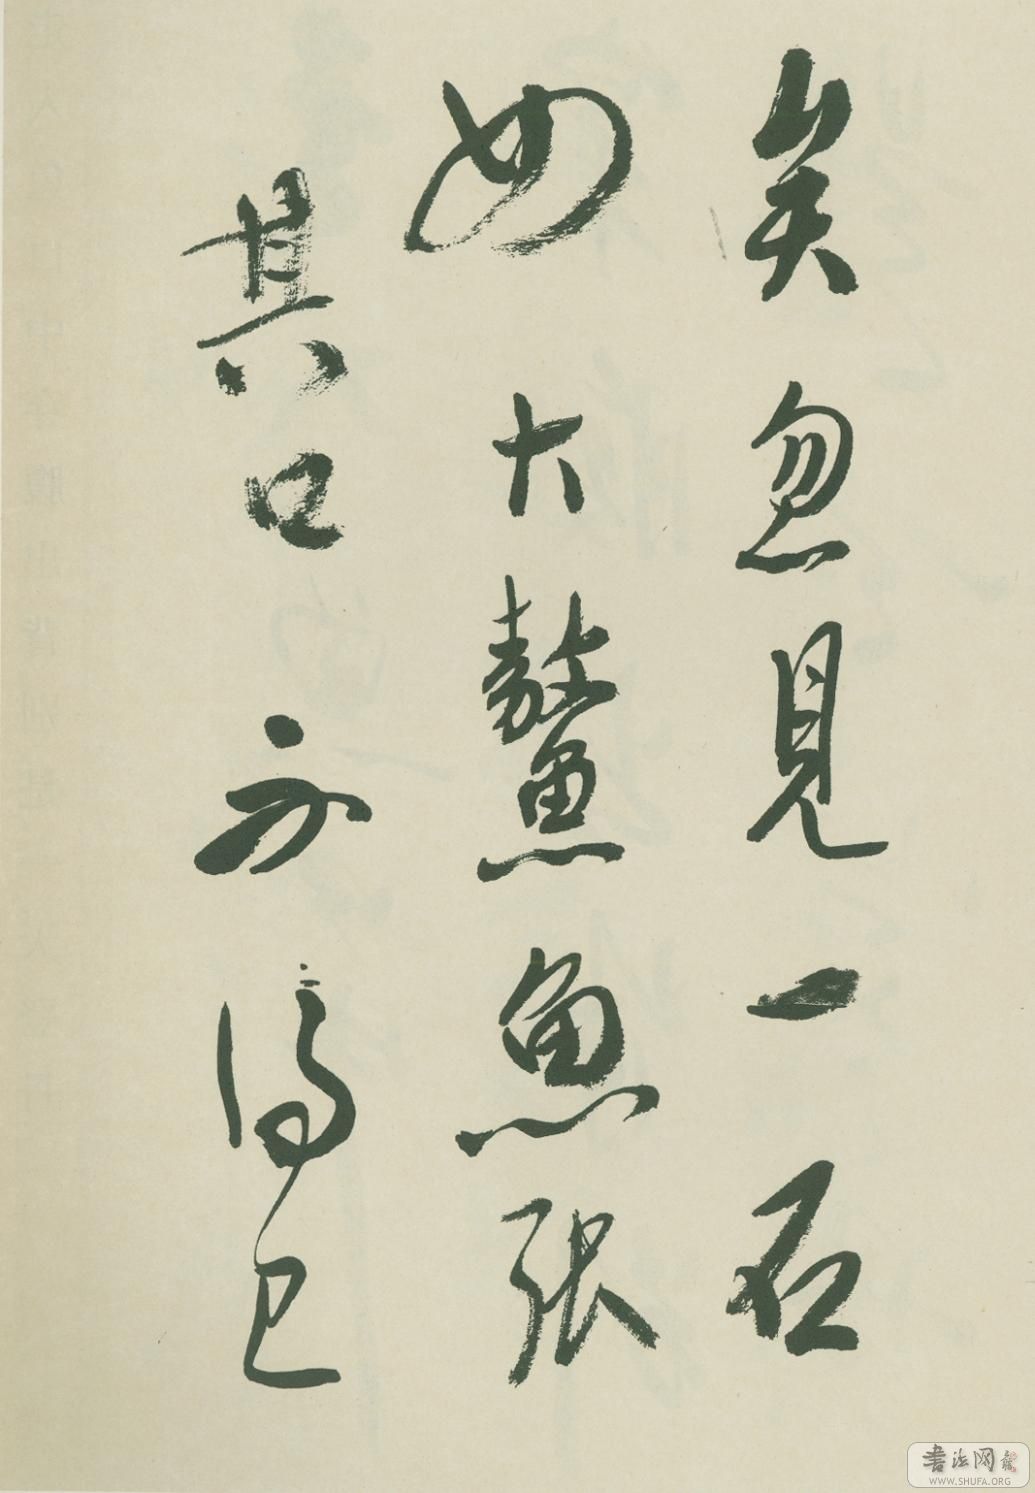 矣忽見一石
如大鼇魚張
其口不得已
書法网
WWW.SHUFA.ORG